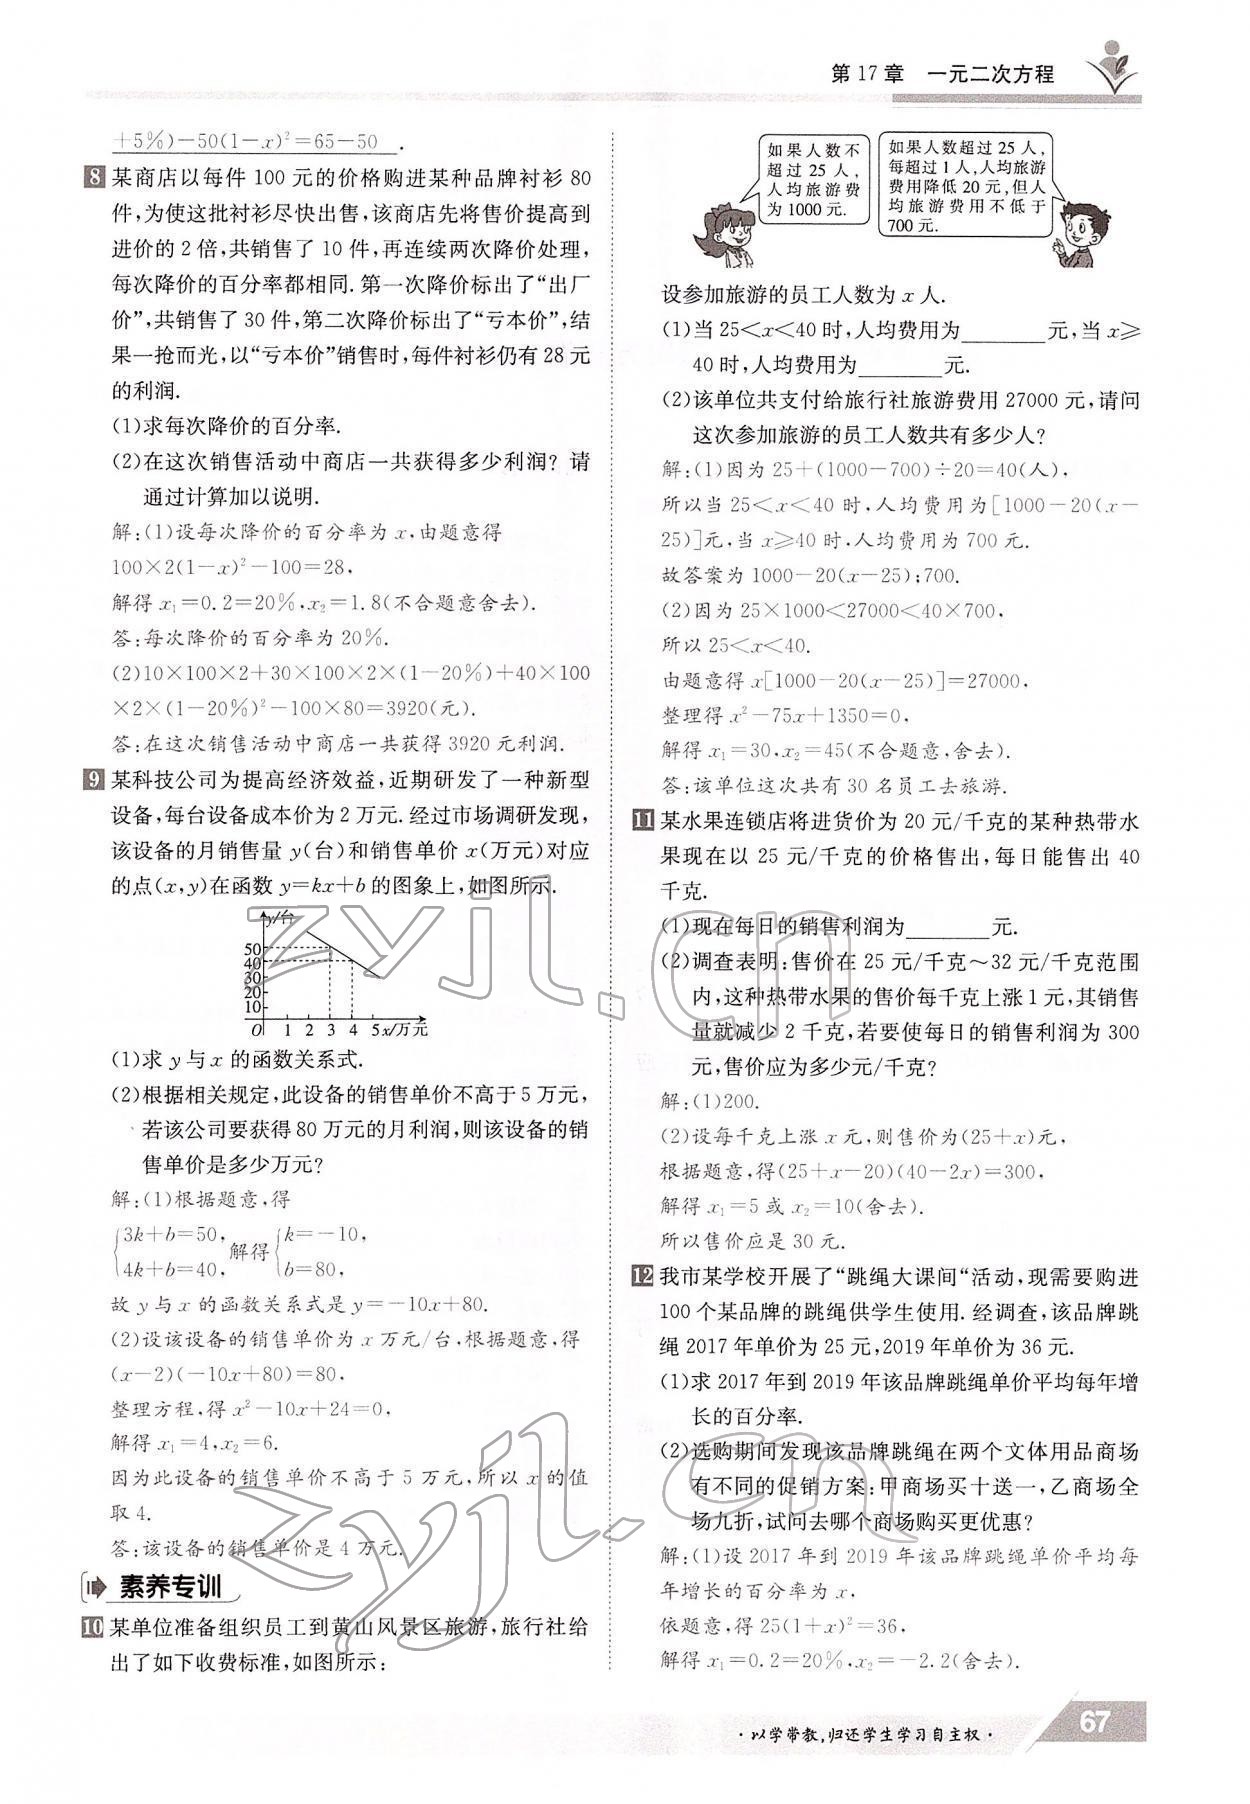 第 17 章　一元二次方程
+5%)-50(1-x)²=65-50 .
8 某商店以每件 100 元的价格购进某种品牌衬衫 80
件,为使这批衬衫尽快出售,该商店先将售价提高到
进价的 2 倍,共销售了 10 件,再连续两次降价处理,
每次降价的百分率都相同. 第一次降价标出了“出厂
价”,共销售了 30 件,第二次降价标出了“亏本价”,结
果一抢而光,以“亏本价”销售时,每件衬衫仍有 28 元
的利润.
(1)求每次降价的百分率.
(2)在这次销售活动中商店一共获得多少利润? 请
通过计算加以说明.
解:(1)设每次降价的百分率为 x,由题意得
100×2(1-x)²-100=28,
解得 x₁=0.2=20%,x₂=1.8(不合题意舍去).
答:每次降价的百分率为 20%.
(2)10×100×2+30×100×2×(1-20%)+40×100
×2×(1-20%)²-100×80=3920(元).
答:在这次销售活动中商店一共获得 3920 元利润.
9 某科技公司为提高经济效益,近期研发了一种新型
设备,每台设备成本价为 2 万元. 经过市场调研发现,
该设备的月销售量 y(台)和销售单价 x(万元)对应
的点(x,y)在函数 y=kx+b 的图象上,如图所示.
y/台
50
40
30
20
10
O 1 2 3 4 5 x/万元
(1)求 y 与 x 的函数关系式.
(2)根据相关规定,此设备的销售单价不高于 5 万元,
若该公司要获得 80 万元的月利润,则该设备的销
售单价是多少万元?
解:(1)根据题意,得
{3k+b=50, 4k+b=40, 解得 {k=-10, b=80,
故 y 与 x 的函数关系式是 y=-10x+80.
(2)设该设备的销售单价为 x 万元/台,根据题意,得
(x-2)(-10x+80)=80,
整理方程,得 x²-10x+24=0,
解得 x₁=4,x₂=6.
因为此设备的销售单价不高于 5 万元,所以 x 的值
取 4.
答:该设备的销售单价是 4 万元.
素养专训
10 某单位准备组织员工到黄山风景区旅游,旅行社给
出了如下收费标准,如图所示:
如果人数不
超过 25 人,
人均旅游费
为 1000 元.
如果人数超过 25 人,
每超过 1 人,人均旅游
费用降低 20 元,但人
均旅游费用不低于
700 元.
设参加旅游的员工人数为 x 人.
(1)当 25<x<40 时,人均费用为______元,当 x≥
40 时,人均费用为______元.
(2)该单位共支付给旅行社旅游费用 27000 元,请问
这次参加旅游的员工人数共有多少人?
解:(1)因为 25+(1000-700)÷20=40(人),
所以当 25<x<40 时,人均费用为[1000-20(x-
25)]元,当 x≥40 时,人均费用为 700 元.
故答案为 1000-20(x-25);700.
(2)因为 25×1000<27000<40×700,
所以 25<x<40.
由题意得 x[1000-20(x-25)]=27000,
整理得 x²-75x+1350=0,
解得 x₁=30,x₂=45(不合题意,舍去).
答:该单位这次共有 30 名员工去旅游.
11 某水果连锁店将进货价为 20 元/千克的某种热带水
果现在以 25 元/千克的价格售出,每日能售出 40
千克.
(1)现在每日的销售利润为______元.
(2)调查表明:售价在 25 元/千克～32 元/千克范围
内,这种热带水果的售价每千克上涨 1 元,其销售
量就减少 2 千克,若要使每日的销售利润为 300
元,售价应为多少元/千克?
解:(1)200.
(2)设每千克上涨 x 元,则售价为(25+x)元,
根据题意,得(25+x-20)(40-2x)=300,
解得 x₁=5 或 x₂=10(舍去).
所以售价应是 30 元.
12 我市某学校开展了“跳绳大课间”活动,现需要购进
100 个某品牌的跳绳供学生使用. 经调查,该品牌跳
绳 2017 年单价为 25 元,2019 年单价为 36 元.
(1)求 2017 年到 2019 年该品牌跳绳单价平均每年增
长的百分率.
(2)选购期间发现该品牌跳绳在两个文体用品商场
有不同的促销方案:甲商场买十送一,乙商场全
场九折,试问去哪个商场购买更优惠?
解:(1)设 2017 年到 2019 年该品牌跳绳单价平均每
年增长的百分率为 x,
依题意,得 25(1+x)²=36,
解得 x₁=0.2=20%,x₂=-2.2(舍去).
· 以学带教,归还学生学习自主权 ·
67
zyjl.cn
zyjl.cn